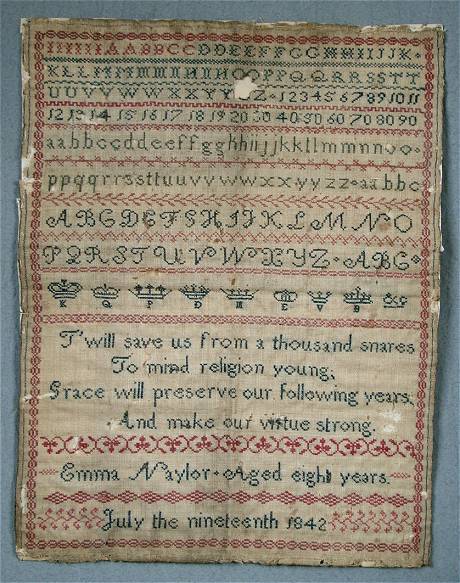 AABBCCDDEEFFGGHHIIJJK
KLLMMNNOOPPQQRRSSTT
UUVVWWXXYY Z 1234567891011
12 13 14 15 16 17 18 19 20 30 40 50 60 70 80 90
aabbccddeeffgghhiijjkkllmmnnoo
ppqqrrssttuuvvwwxxyyzz aabbc
ABCDEFGHIJKLMNO
PQRSTUVWXYZ ABC
K Q P D M E V B
T'will save us from a thousand snares
To mind religion young;
Grace will preserve our following years,
And make our virtue strong.
Emma Naylor Aged eight years.
July the nineteenth 1842